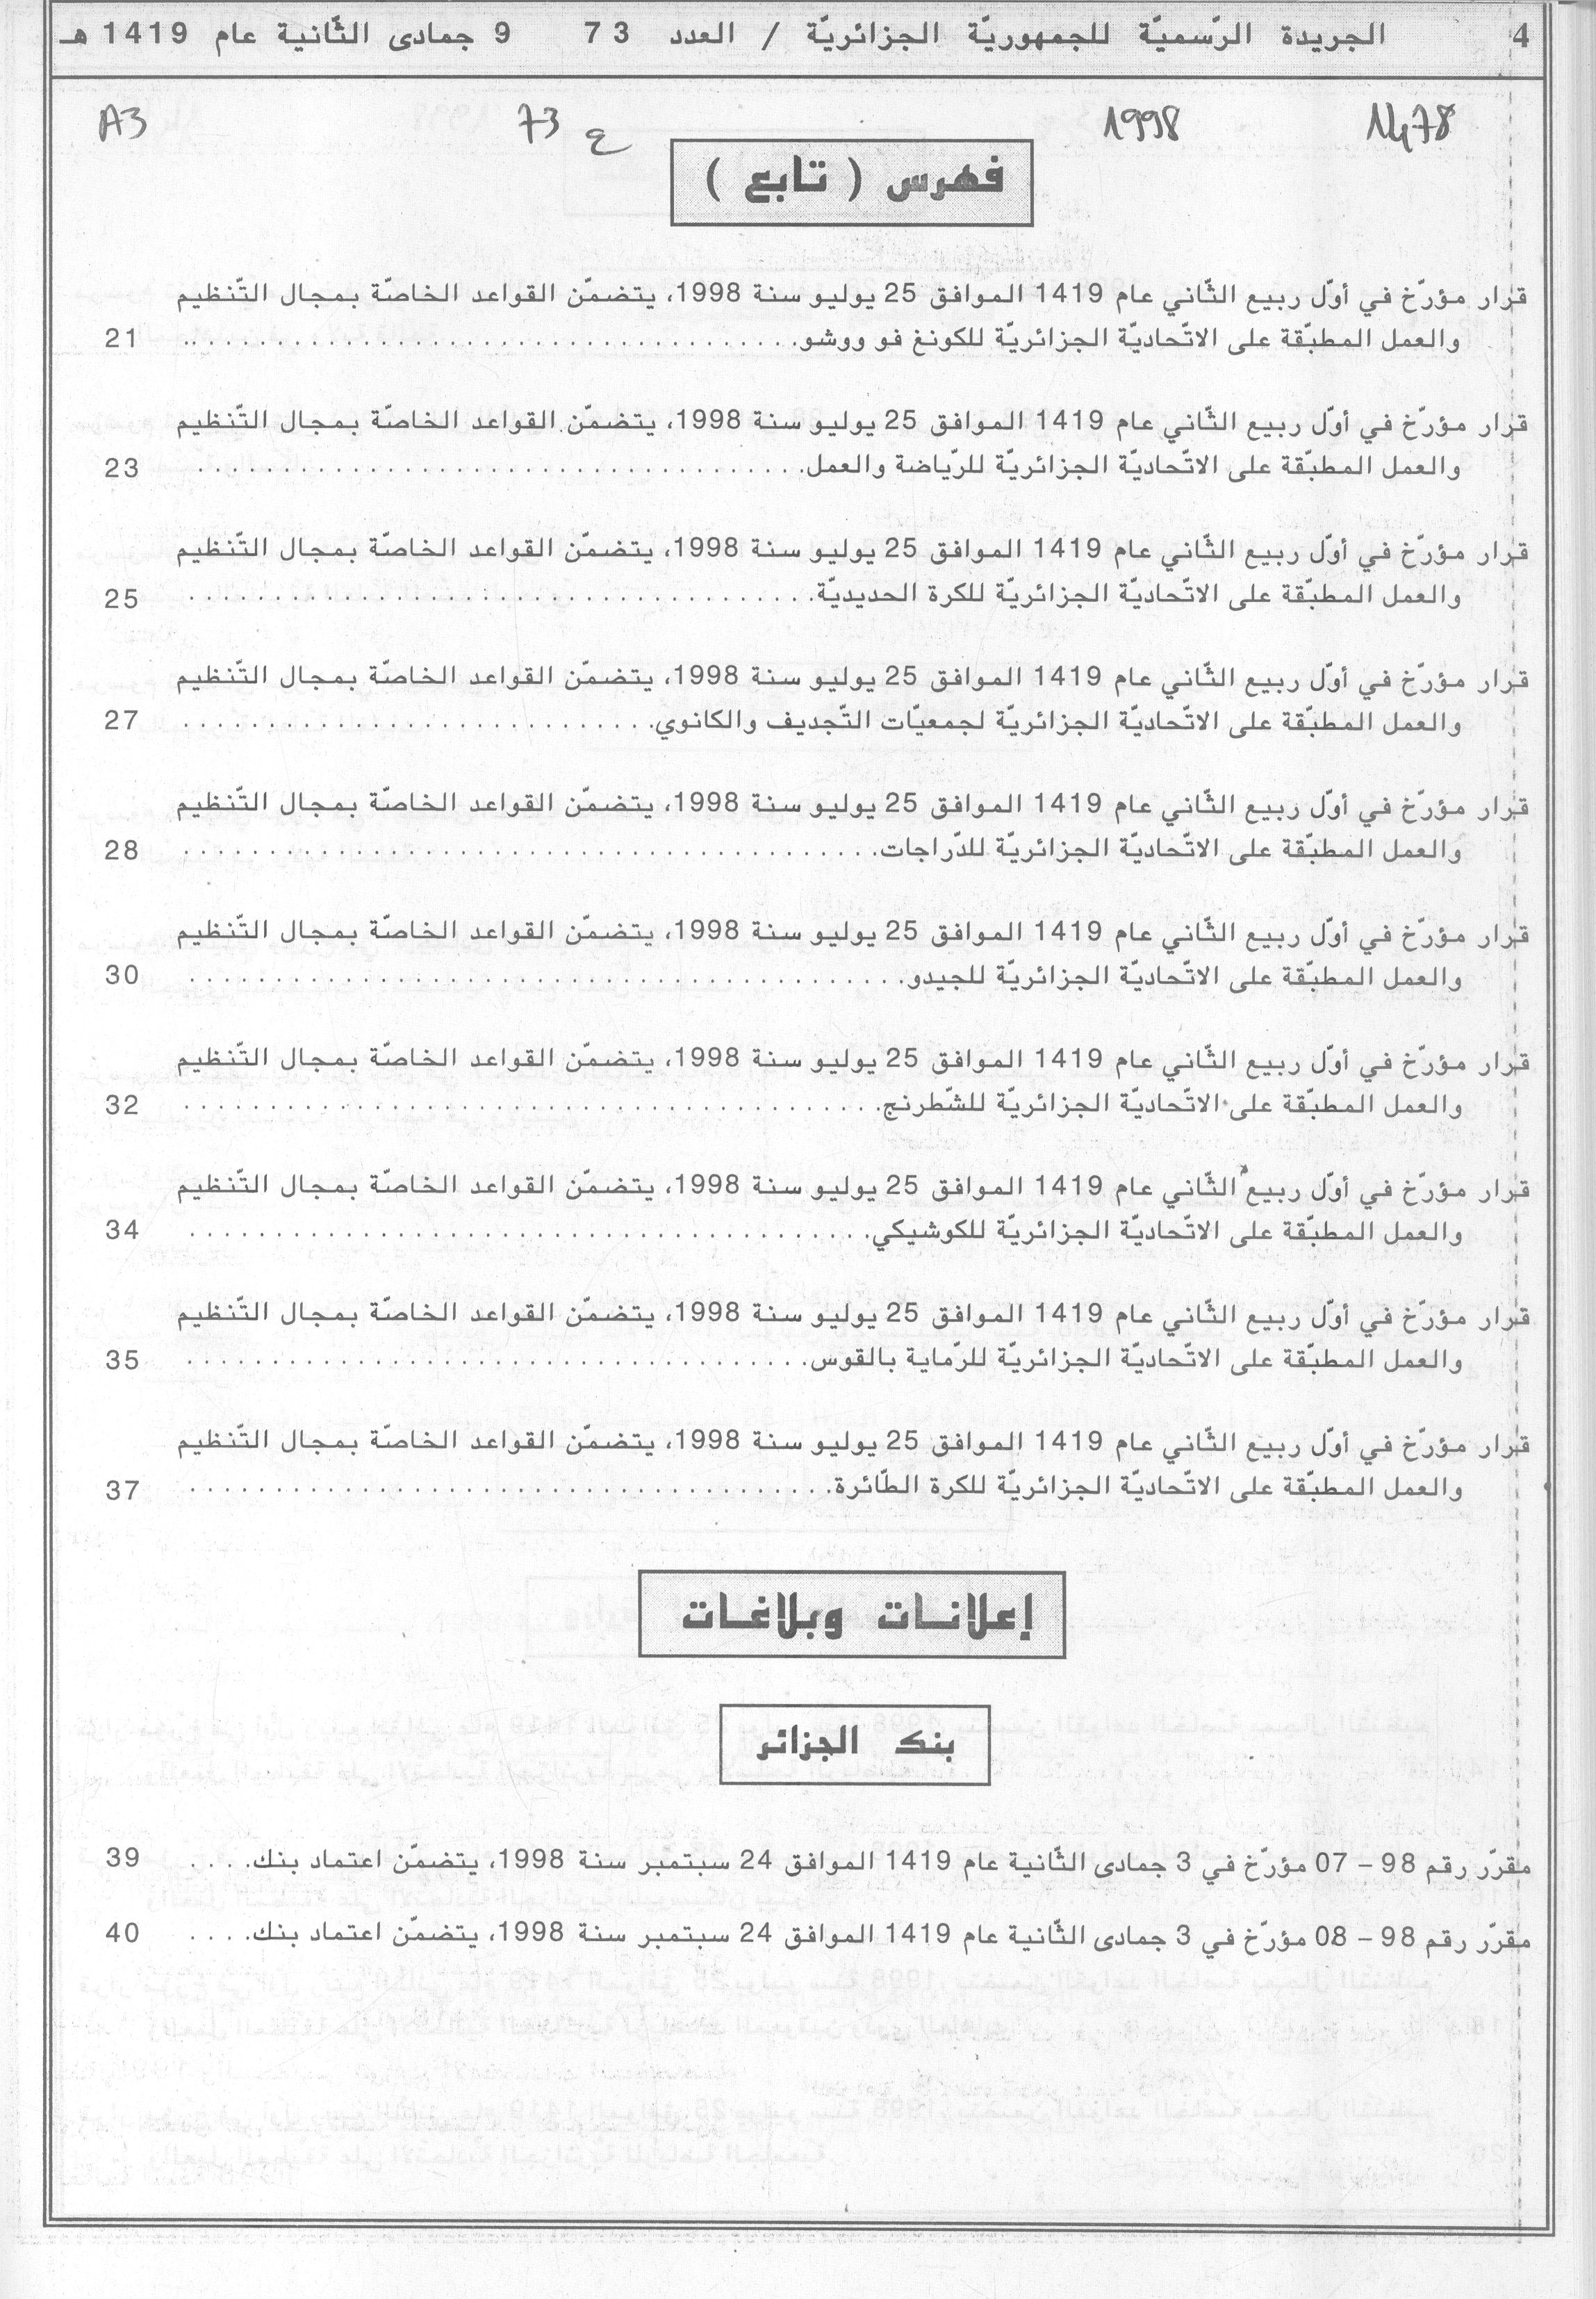 4 الجريدة الرّسميّة للجمهوريّة الجزائريّة / العدد 73 9 جمادى الثّانية عام 1419 هـ
1478 1998 ع 73 A3
فهرس ( تابع )
قرار مؤرّخ في أوّل ربيع الثّاني عام 1419 الموافق 25 يوليو سنة 1998، يتضمّن القواعد الخاصّة بمجال التّنظيم
والعمل المطبّقة على الاتّحاديّة الجزائريّة للكونغ فو ووشو. 21
قرار مؤرّخ في أوّل ربيع الثّاني عام 1419 الموافق 25 يوليو سنة 1998، يتضمّن القواعد الخاصّة بمجال التّنظيم
والعمل المطبّقة على الاتّحاديّة الجزائريّة للرّياضة والعمل. 23
قرار مؤرّخ في أوّل ربيع الثّاني عام 1419 الموافق 25 يوليو سنة 1998، يتضمّن القواعد الخاصّة بمجال التّنظيم
والعمل المطبّقة على الاتّحاديّة الجزائريّة للكرة الحديديّة. 25
قرار مؤرّخ في أوّل ربيع الثّاني عام 1419 الموافق 25 يوليو سنة 1998، يتضمّن القواعد الخاصّة بمجال التّنظيم
والعمل المطبّقة على الاتّحاديّة الجزائريّة لجمعيّات التّجديف والكانوي. 27
قرار مؤرّخ في أوّل ربيع الثّاني عام 1419 الموافق 25 يوليو سنة 1998، يتضمّن القواعد الخاصّة بمجال التّنظيم
والعمل المطبّقة على الاتّحاديّة الجزائريّة للدّراجات. 28
قرار مؤرّخ في أوّل ربيع الثّاني عام 1419 الموافق 25 يوليو سنة 1998، يتضمّن القواعد الخاصّة بمجال التّنظيم
والعمل المطبّقة على الاتّحاديّة الجزائريّة للجيدو. 30
قرار مؤرّخ في أوّل ربيع الثّاني عام 1419 الموافق 25 يوليو سنة 1998، يتضمّن القواعد الخاصّة بمجال التّنظيم
والعمل المطبّقة على الاتّحاديّة الجزائريّة للشّطرنج. 32
قرار مؤرّخ في أوّل ربيع الثّاني عام 1419 الموافق 25 يوليو سنة 1998، يتضمّن القواعد الخاصّة بمجال التّنظيم
والعمل المطبّقة على الاتّحاديّة الجزائريّة للكوشيكي. 34
قرار مؤرّخ في أوّل ربيع الثّاني عام 1419 الموافق 25 يوليو سنة 1998، يتضمّن القواعد الخاصّة بمجال التّنظيم
والعمل المطبّقة على الاتّحاديّة الجزائريّة للرّماية بالقوس. 35
قرار مؤرّخ في أوّل ربيع الثّاني عام 1419 الموافق 25 يوليو سنة 1998، يتضمّن القواعد الخاصّة بمجال التّنظيم
والعمل المطبّقة على الاتّحاديّة الجزائريّة للكرة الطّائرة. 37
إعلانات وبلاغات
بنك الجزائر
مقرّر رقم 98 – 07 مؤرّخ في 3 جمادى الثّانية عام 1419 الموافق 24 سبتمبر سنة 1998، يتضمّن اعتماد بنك. 39
مقرّر رقم 98 – 08 مؤرّخ في 3 جمادى الثّانية عام 1419 الموافق 24 سبتمبر سنة 1998، يتضمّن اعتماد بنك. 40